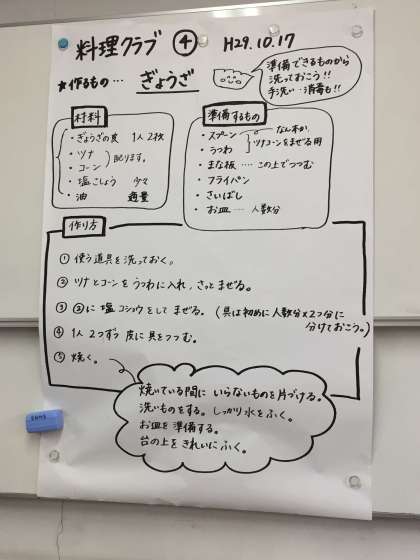 料理クラブ ④ H29.10.17
★作るもの… ぎょうざ
準備できるものから
洗っておこう!!
手洗い・消毒も!!
材料
・ぎょうざの皮 1人2枚
・ツナ
・コーン
配ります。
・塩こしょう 少々
・油 適量
準備するもの
・スプーン
・うつわ
なん本か。
ツナコーンをまぜる用
・まな板 …. この上でつつむ
・フライパン
・さいばし
・お皿 … 人数分
作り方
① 使う道具を洗っておく。
② ツナとコーンをうつわに入れ、さっとまぜる。
③ ②に塩コショウをしてまぜる。(具は初めに人数分×2つ分に
分けておこう。)
④ 1人2つずつ皮に具をつつむ。
⑤ 焼く。
焼いている間にいらないものを片づける。
洗いものをする。しっかり水をふく。
お皿を準備する。
台の上をきれいにふく。